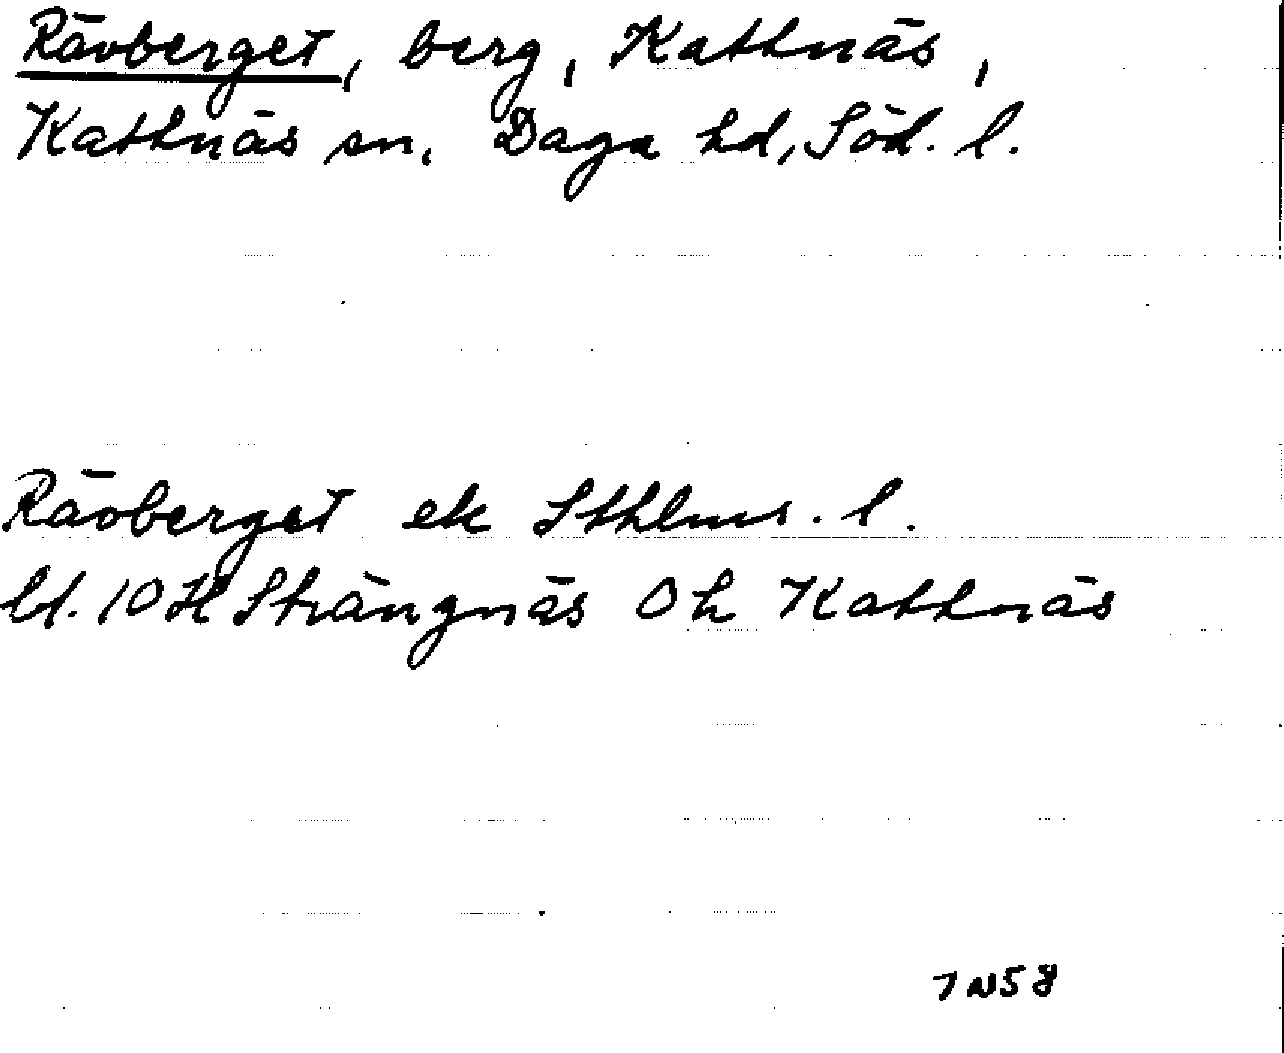 Rävberget, berg, Kattnäs,
Kattnäs sn, Daga hd, Söd. l.
Rävberget ek Sthlms. l.
bl. 10H Strängnäs 0h Kattnäs
7N58